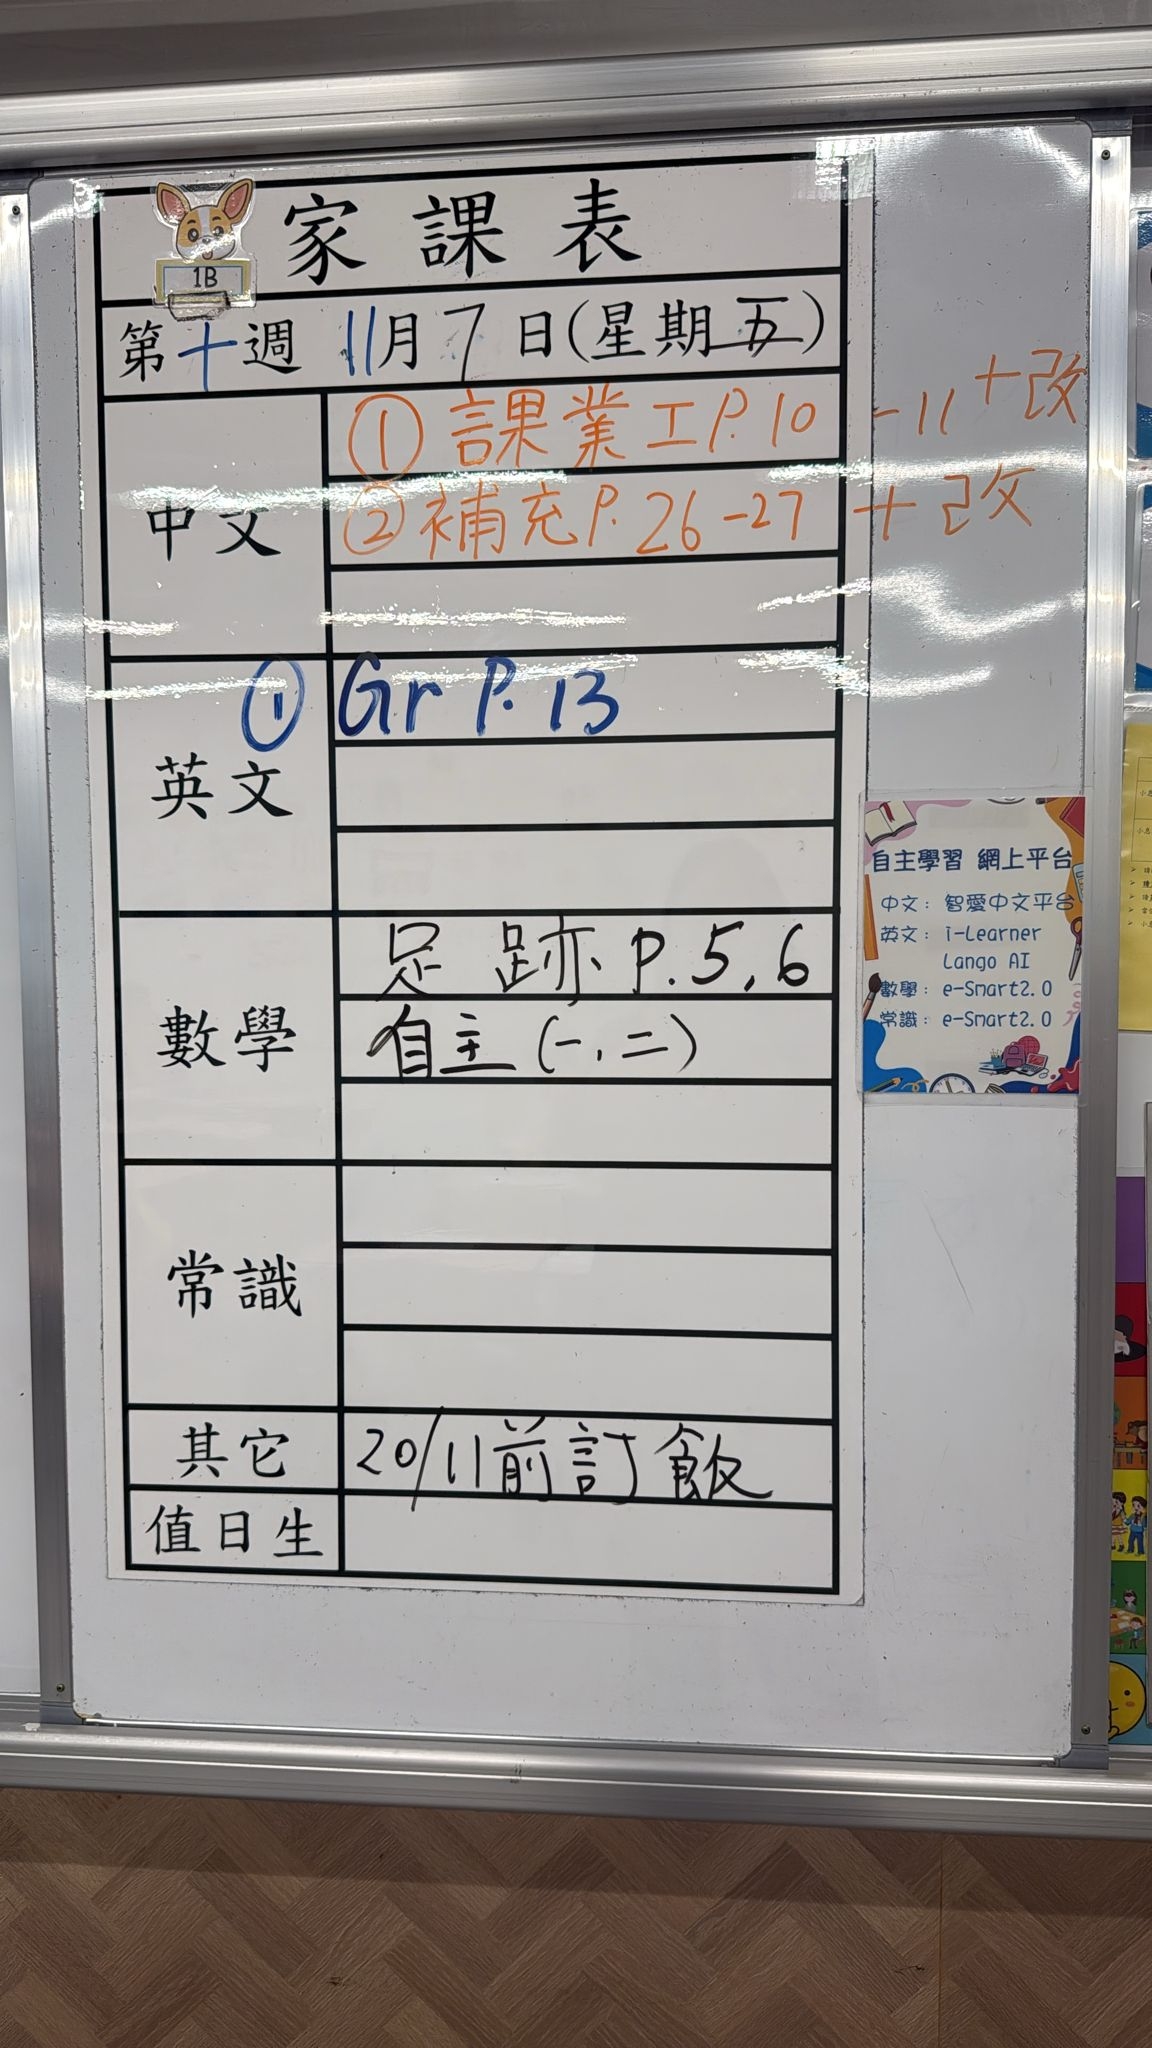 家課表
1B
第十週 11月7日(星期五)
中文
① 課業工P.10-11+改
② 補充P.26-27+改
英文
① Gr P.13
數學
足跡 P.5,6
自主(一,二)
常識
其它
20/11前訂飯
值日生
自主學習 網上平台
中文：智愛中文平台
英文：i-Learner
Lango AI
數學：e-Smart2.0
常識：e-Smart2.0